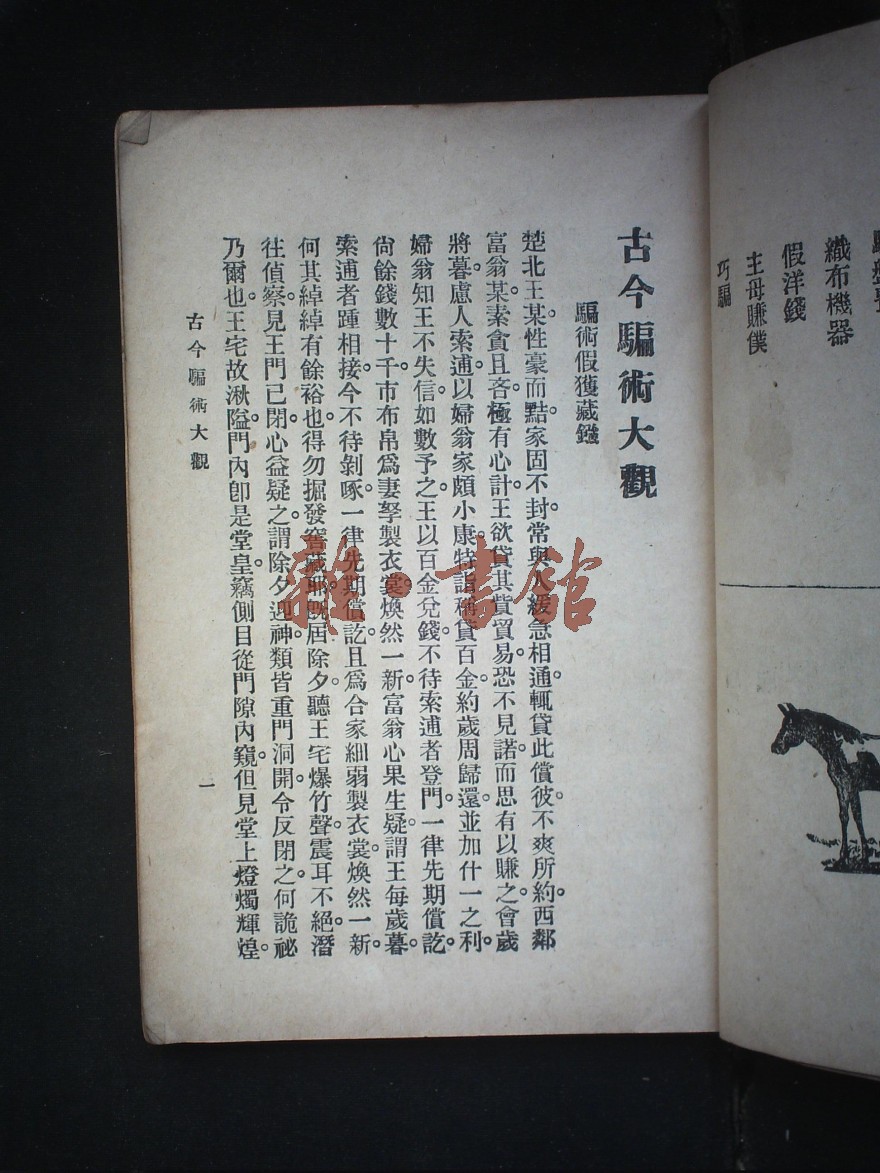 織布機器
假洋錢
主母賺僕
巧騙
古今騙術大觀
騙術假獲藏鏹
楚北王某。性豪而黠。家固不封。常與人緩急相通。輒貸此償彼。不爽所約。西鄰
富翁某。素貪且吝。極有心計。王欲貸其貲貿易。恐不見諾。而思有以賺之。會歲
將暮。慮人索逋。以婦翁家頗小康。特詣稱貸百金。約歲周歸還。並加什一之利。
婦翁知王不失信。如數予之。王以百金兌錢。不待索逋者登門。一律先期償訖。
尙餘錢數十千。市布帛爲妻孥製衣裳。煥然一新。富翁心果生疑。謂王每歲暮。
索逋者踵相接。今不待剝啄。一律先期償訖。且爲合家細弱製衣裳。煥然一新。
何其綽綽有餘裕也。得勿掘發窖藏耶。旣屆除夕。聽王宅爆竹聲震耳不絕。潛
往偵察。見王門已閉。心益疑之。謂除夕迎神。類皆重門洞開。今反閉之。何詭祕
乃爾也。王宅故湫隘。門內卽是堂皇。竊側目從門隙內窺。但見堂上燈燭輝煌。
古今騙術大觀
一
雜·書館